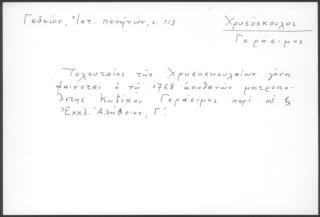 Γεδεών, π/ετ. πενήτων, σ. 113
Χρυσοσκουλος
Γεράσιμος
Τελευταίος τῶν Χρυσοσκουλαίων γόνος
φαίνεται ὁ τῷ 1768 ἀποθανών μητροπο-
λίτης Κυζίκου Γεράσιμος περί οὗ
Ἐκκλ. Ἀλήθειαν, Γ΄.